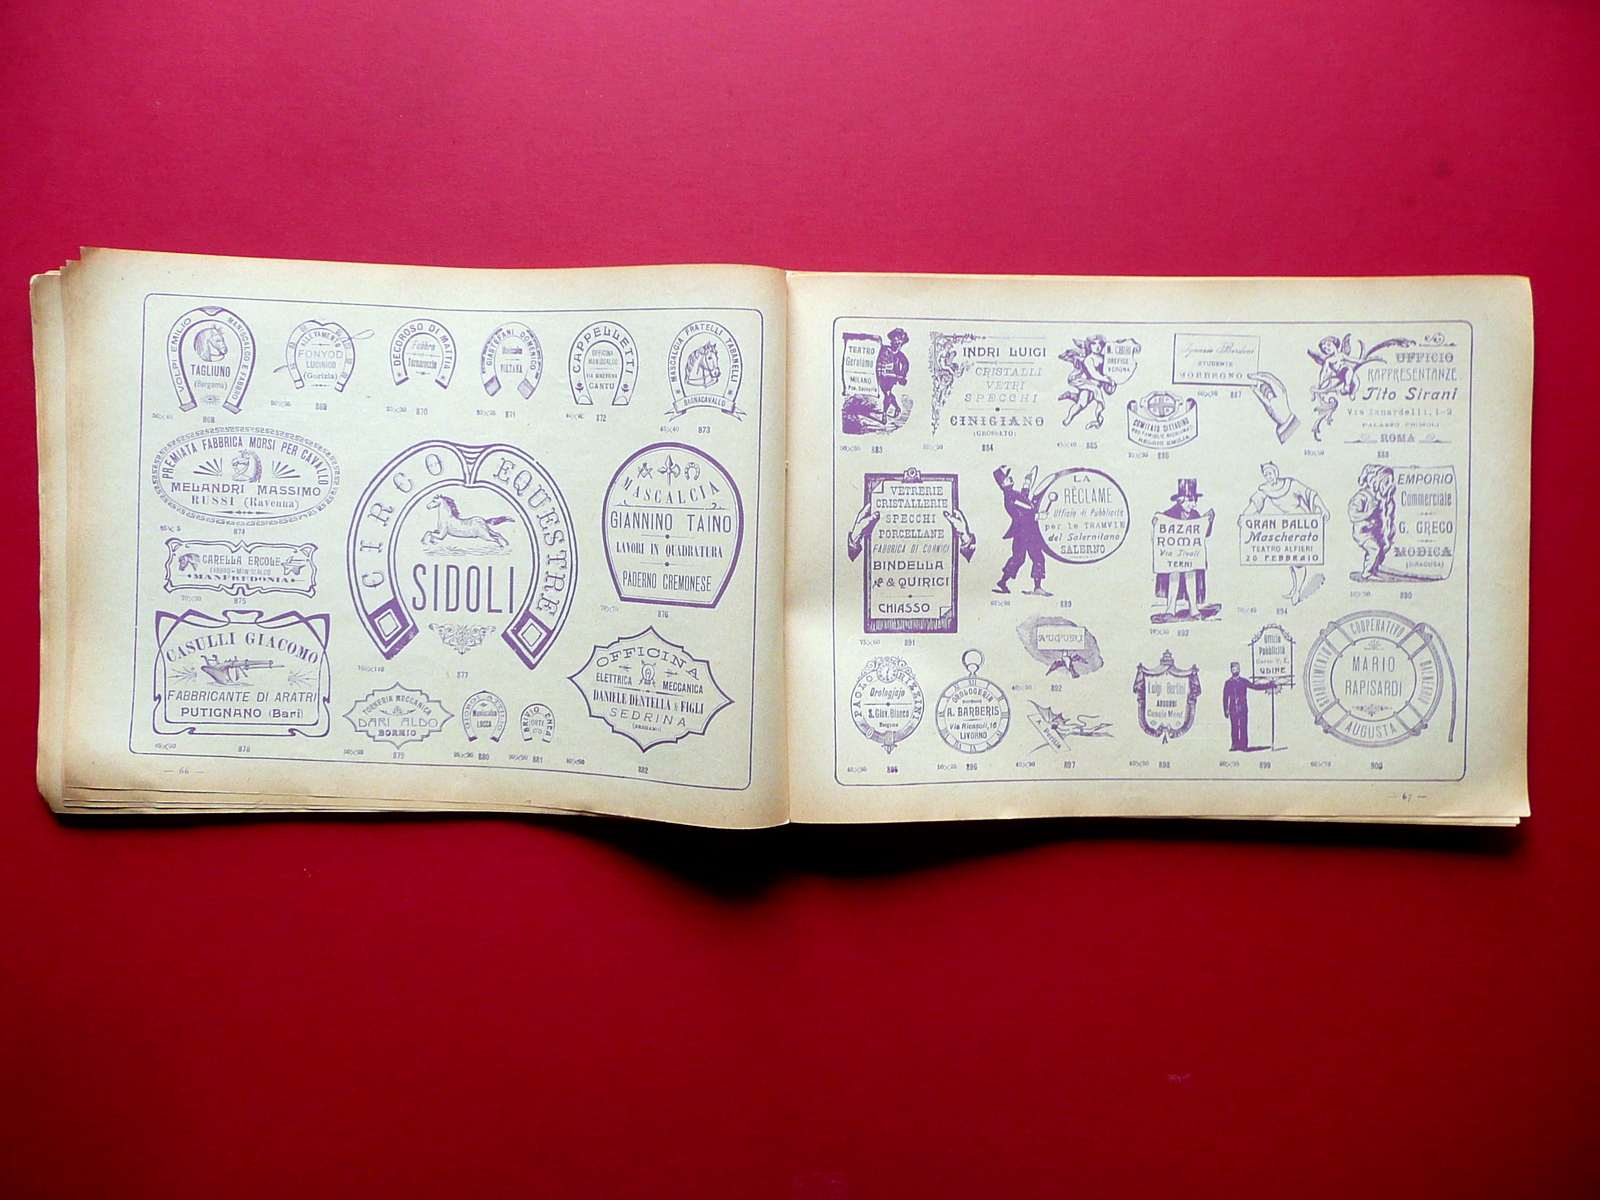 VOLPI EMILIO
MANISCALCO E FABBRO
TAGLIUNO
(Bergamo)
50×40
868
ALLEVAMENTO
FONYOD
LUCINICO
(Gorizia)
869
DECOROSO DI MATTIA
Fabbro
Tornareccio
870
DEGIASTEFANI DOMENICO
871
CAPPELLETTI
OFFICINA
MANISCALCO
VIA GINEVRINA
CANTÙ
872
MASCALCIA FRATELLI TABANELLI
BAGNACAVALLO
45×40
873
PREMIATA FABBRICA MORSI PER CAVALLO
MELANDRI MASSIMO
RUSSI (Ravenna)
874
CARELLA ERCOLE
FABBRO - MANISCALCO
MANFREDONIA
70×30
875
CIRCO EQUESTRE
SIDOLI
877
MASCALCIA
GIANNINO TAINO
LAVORI IN QUADRATURA
PADERNO CREMONESE
876
CASULLI GIACOMO
FABBRICANTE DI ARATRI
PUTIGNANO (Bari)
878
TORNERIA MECCANICA
DARI ALDO
BORMIO
879
Maniscalco
LUCCA
880
BRIVIO ENEA
881
OFFICINA
ELETTRICA MECCANICA
DANIELE DENTELLA & FIGLI
SEDRINA
(BERGAMO)
882
— 66 —
TEATRO
Gerolamo
MILANO
883
INDRI LUIGI
CRISTALLI
VETRI
SPECCHI
CINIGIANO
(GROSSETO)
884
OREFICE
VERONA
45×40
885
COMITATO CITTADINO
PRO FAMIGLIE RICHIAMATI
REGGIO EMILIA
886
Ignazio Bordoni
STUDENTE
MORBEGNO
887
UFFICIO
RAPPRESENTANZE
Tito Sirani
Via Zanardelli, 1-2
PALAZZO PRIMOLI
ROMA
888
VETRERIE
CRISTALLERIE
SPECCHI
PORCELLANE
FABBRICA DI CORNICI
BINDELLA
& QUIRICI
CHIASSO
891
LA
RÉCLAME
Ufficio di Pubblicità
per le TRAMVIE
del Salernitano
SALERNO
889
BAZAR
ROMA
Via Tivoli
TERNI
893
GRAN BALLO
Mascherato
TEATRO ALFIERI
20 FEBBRAIO
894
EMPORIO
Commerciale
G. GRECO
MODICA
(SIRAGUSA)
890
PAOLO RIZZINI
Orologiajo
S. Giov. Bianco
Bergamo
895
OROLOGERIA
A. BARBERIS
Via Ricasoli, 16
LIVORNO
896
AUGURI
892
897
Luigi Bertini
Casale Monf.
898
Ufficio
Pubblicità
Corso V. E.
UDINE
899
STABILIMENTO COOPERATIVO BALNEARIO
MARIO
RAPISARDI
AUGUSTA
900
— 67 —